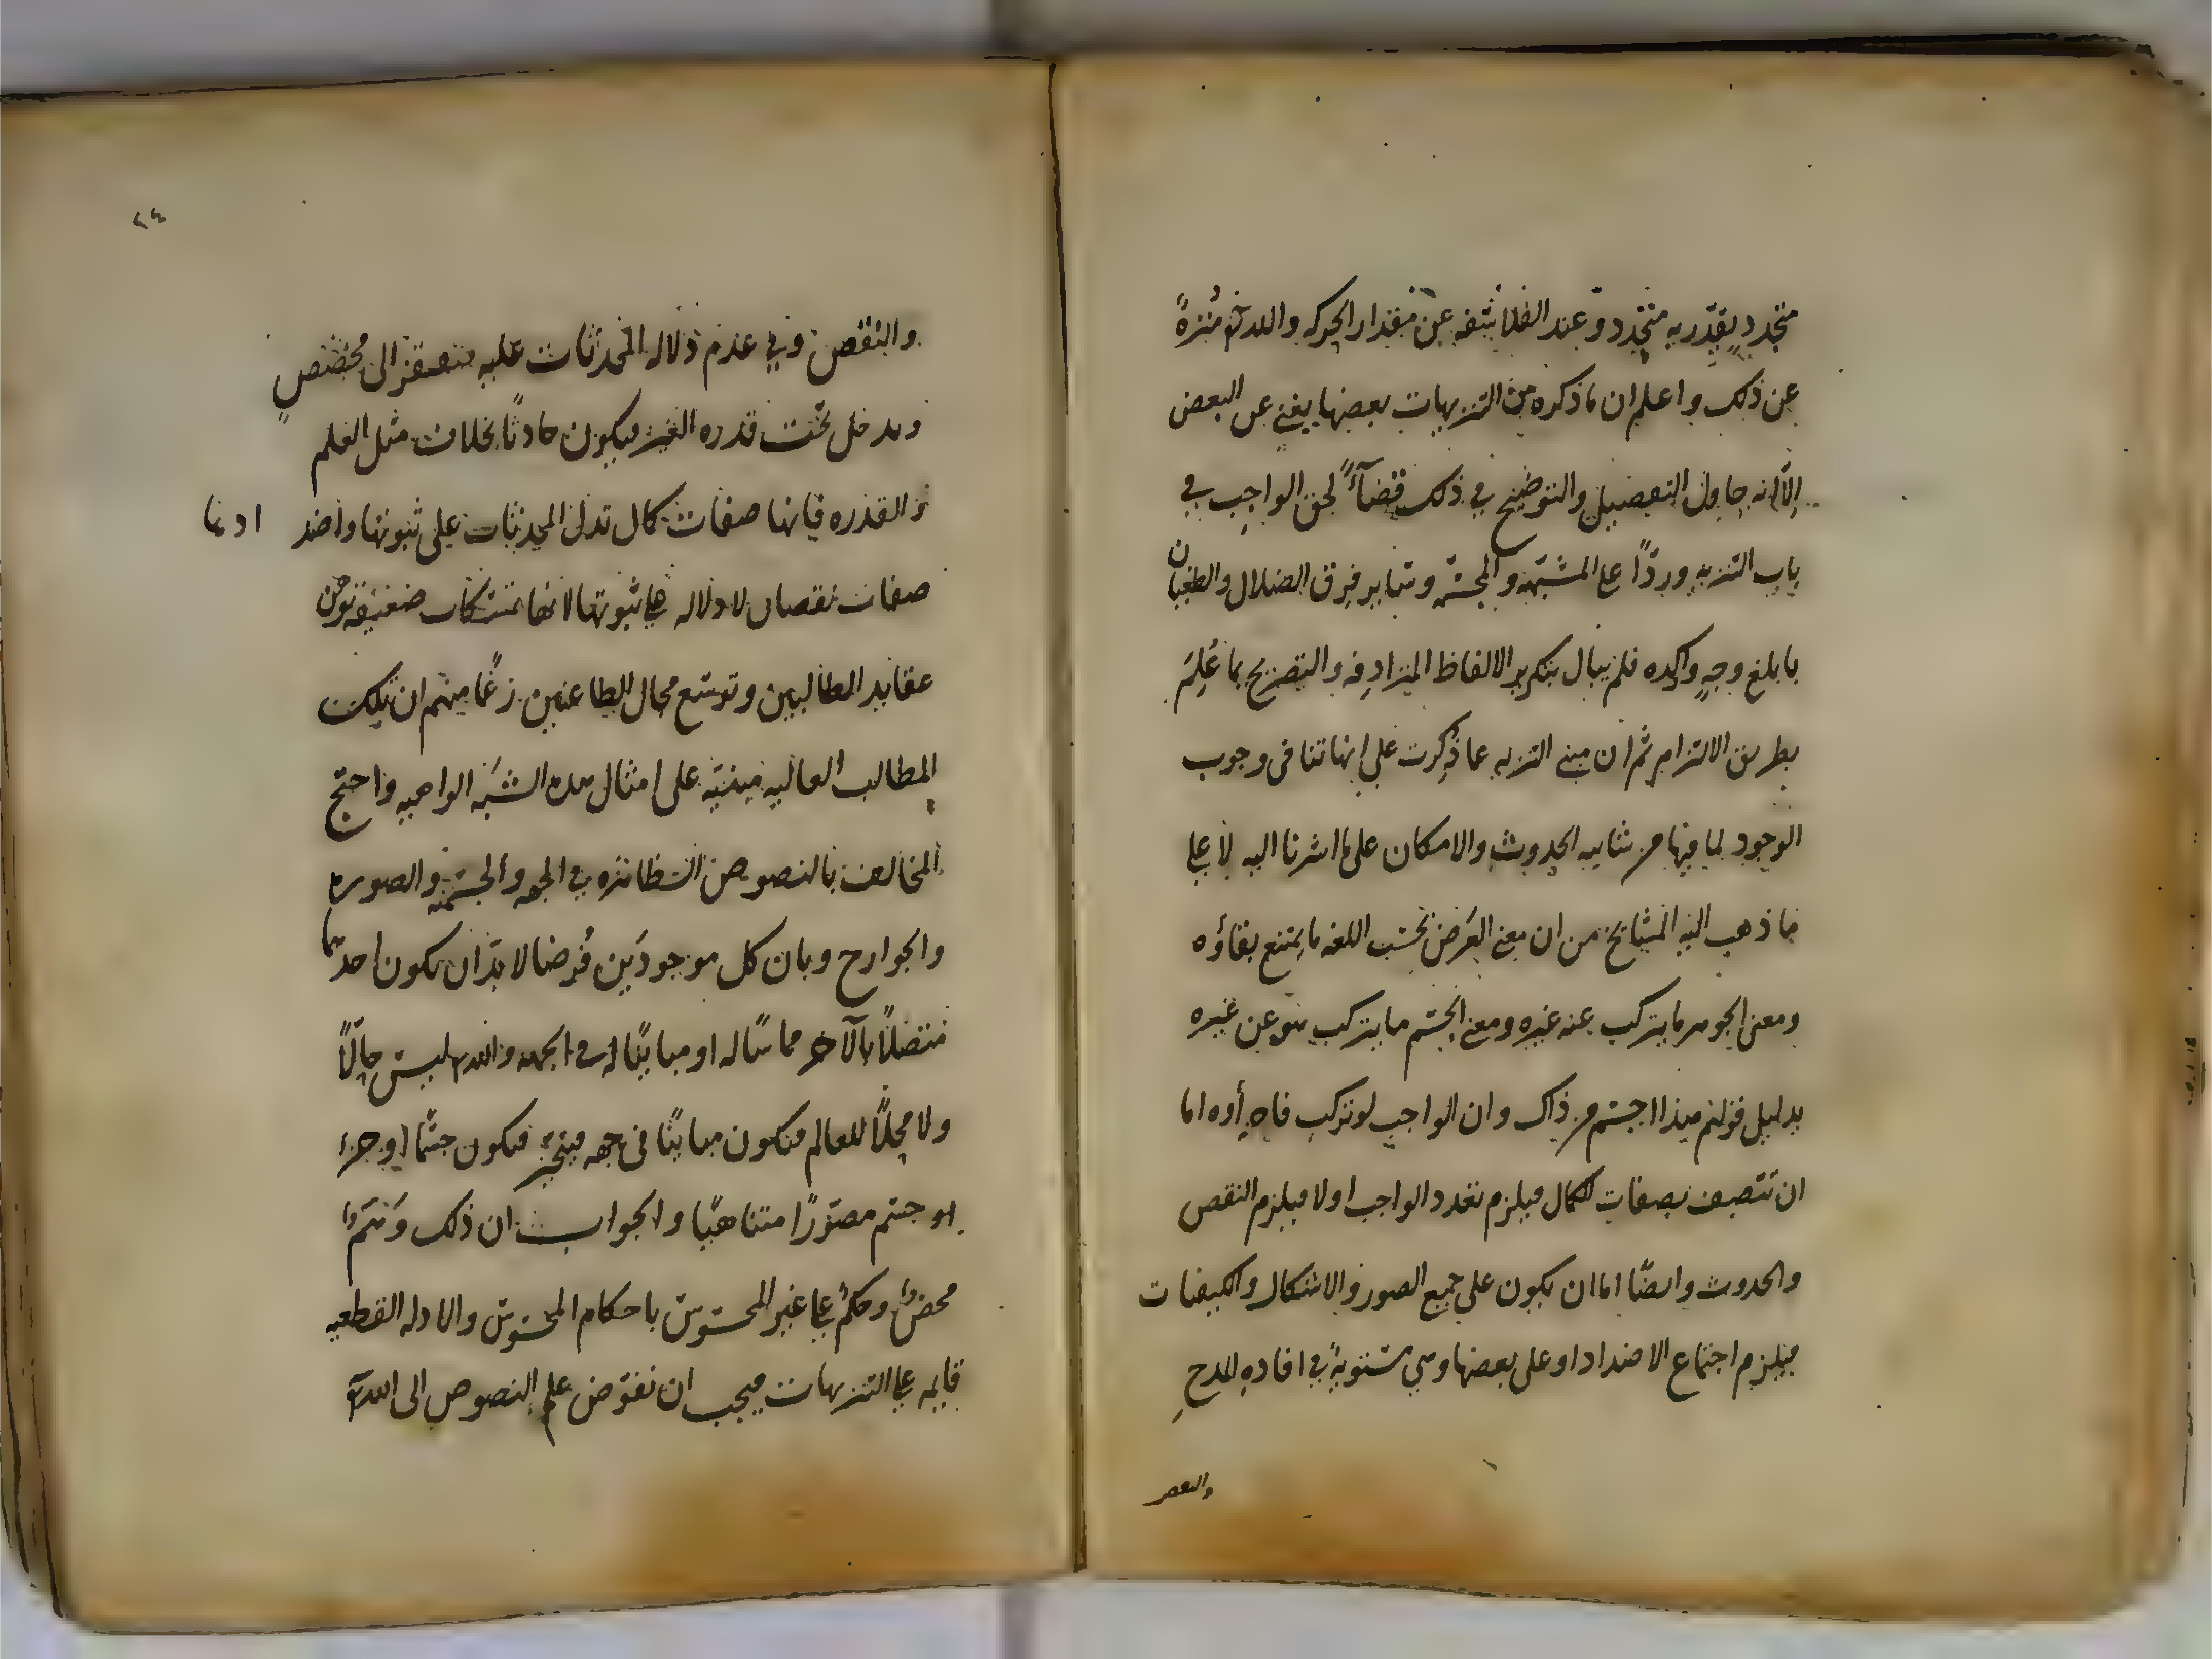 متجدد يقدر به متجدد وعند الفلاسفه عن مقدار الحركه والله تع منزه
عن ذلك واعلم ان ما ذكره من التنزيهات بعضها يغني عن البعض
الا انه حاول التفصيل والتوضيح في ذلك قضآء لحق الواجب في
باب التنزيه وردًا على المشبهه والمجسمه وساير فرق الضلال والطغيان
بابلغ وجهٍ واكده فلم يبال بتكرير الالفاظ المترادفه والتصريح بما عُلِمَ
بطريق الالتزام ثم ان مبني التنزيه عما ذُكِرت على انها تنافى وجوب
الوجود لما فيها من شايبه الحدوث والامكان على ما اشرنا اليه لا على
ما ذهب اليه المشايخ من ان معنى العَرض بحسب اللغه ما يمتنع بقاؤه
ومعنى الجوهر ما يتركب عنه غيره ومعنى الجسم ما يتركب هو عن غيره
بدليل قولهم هذا اجسم من ذاك وان الواجب لو تركب فاجزاؤه اما
ان تتصف بصفات الكمال فيلزم تعدد الواجب او لا فيلزم النقص
والحدوث وايضًا اما ان يكون على جميع الصور والاشكال والكيفيات
فيلزم اجتماع الاضداد او على بعضها وهي مستويةٌ في افاده المدحِ
والنقص
٢٤
والنقص وفي عدم دلاله المحدثات عليه فيفتقر الى مخصّصٍ
ويدخل تحت قدره الغير فيكون حادثًا بخلاف مثل العلم
والقدره فانها صفات كمال تدل المحدثات على ثبوتها واضد
ادها
صفات نقصان لا دلاله على ثبوتها لانها تمسّكات ضعيفه توهن
عقايد الطالبين وتوسّع مجال الطاعنين زعمًا منهم ان تلك
المطالب العاليه مبنيّه على امثال هذه الشبَه الواهيه واحتج
المخالف بالنصوص الظاهره في الجهه والجسميّه والصوره
والجوارح وبان كل موجودَين فُرضا لا بدّ ان يكون احدهما
متصلًا بالآخر مماسًا له او مباينًا له في الجهه والله تع ليس حالًّا
ولا محلًّا للعالم فيكون مباينًا في جهه فيتحيّز فيكون جسمًا او جزء
او جسم مصوّرًا متناهيًا والجواب ان ذلك وَهمٌ
محضٌ وحكمٌ على غير المحسوس باحكام المحسوس والادله القطعيه
قايمه على التنزيهات فيجب ان نفوّض علم النصوص الى الله تع